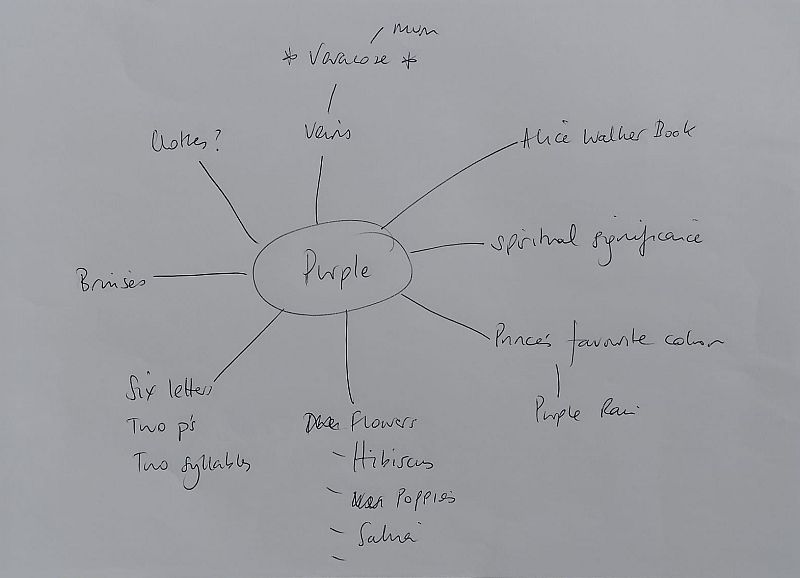 mum
* Varacose *
Veins
Clothes?
Alice Walker Book
spiritual significance
Purple
Bruises
Prince's favourite colour
Purple Rain
Six letters
Two p's
Two syllables
Flowers
- Hibiscus
- Poppies
- Salvia
-